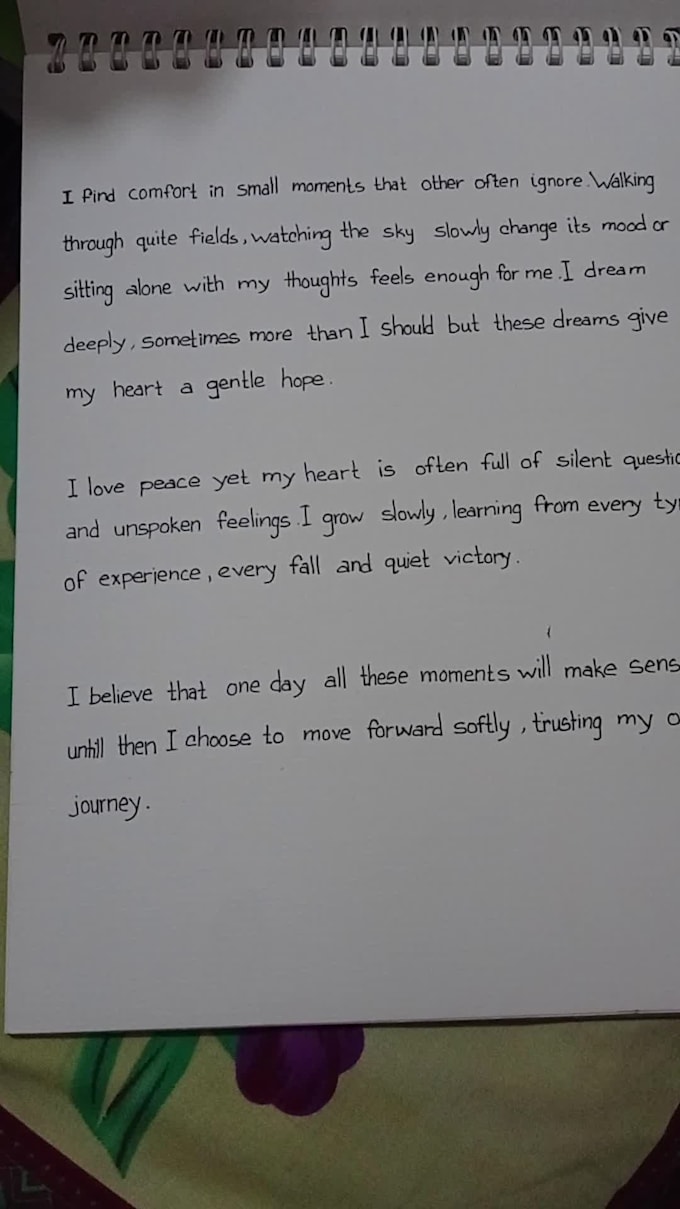 I find comfort in small moments that other often ignore. Walking
through quite fields, watching the sky slowly change its mood or
sitting alone with my thoughts feels enough for me. I dream
deeply, sometimes more than I should but these dreams give
my heart a gentle hope.
I love peace yet my heart is often full of silent
and unspoken feelings. I grow slowly, learning from every
of experience, every fall and quiet victory.
I believe that one day all these moments will make
untill then I choose to move forward softly, trusting my
journey.